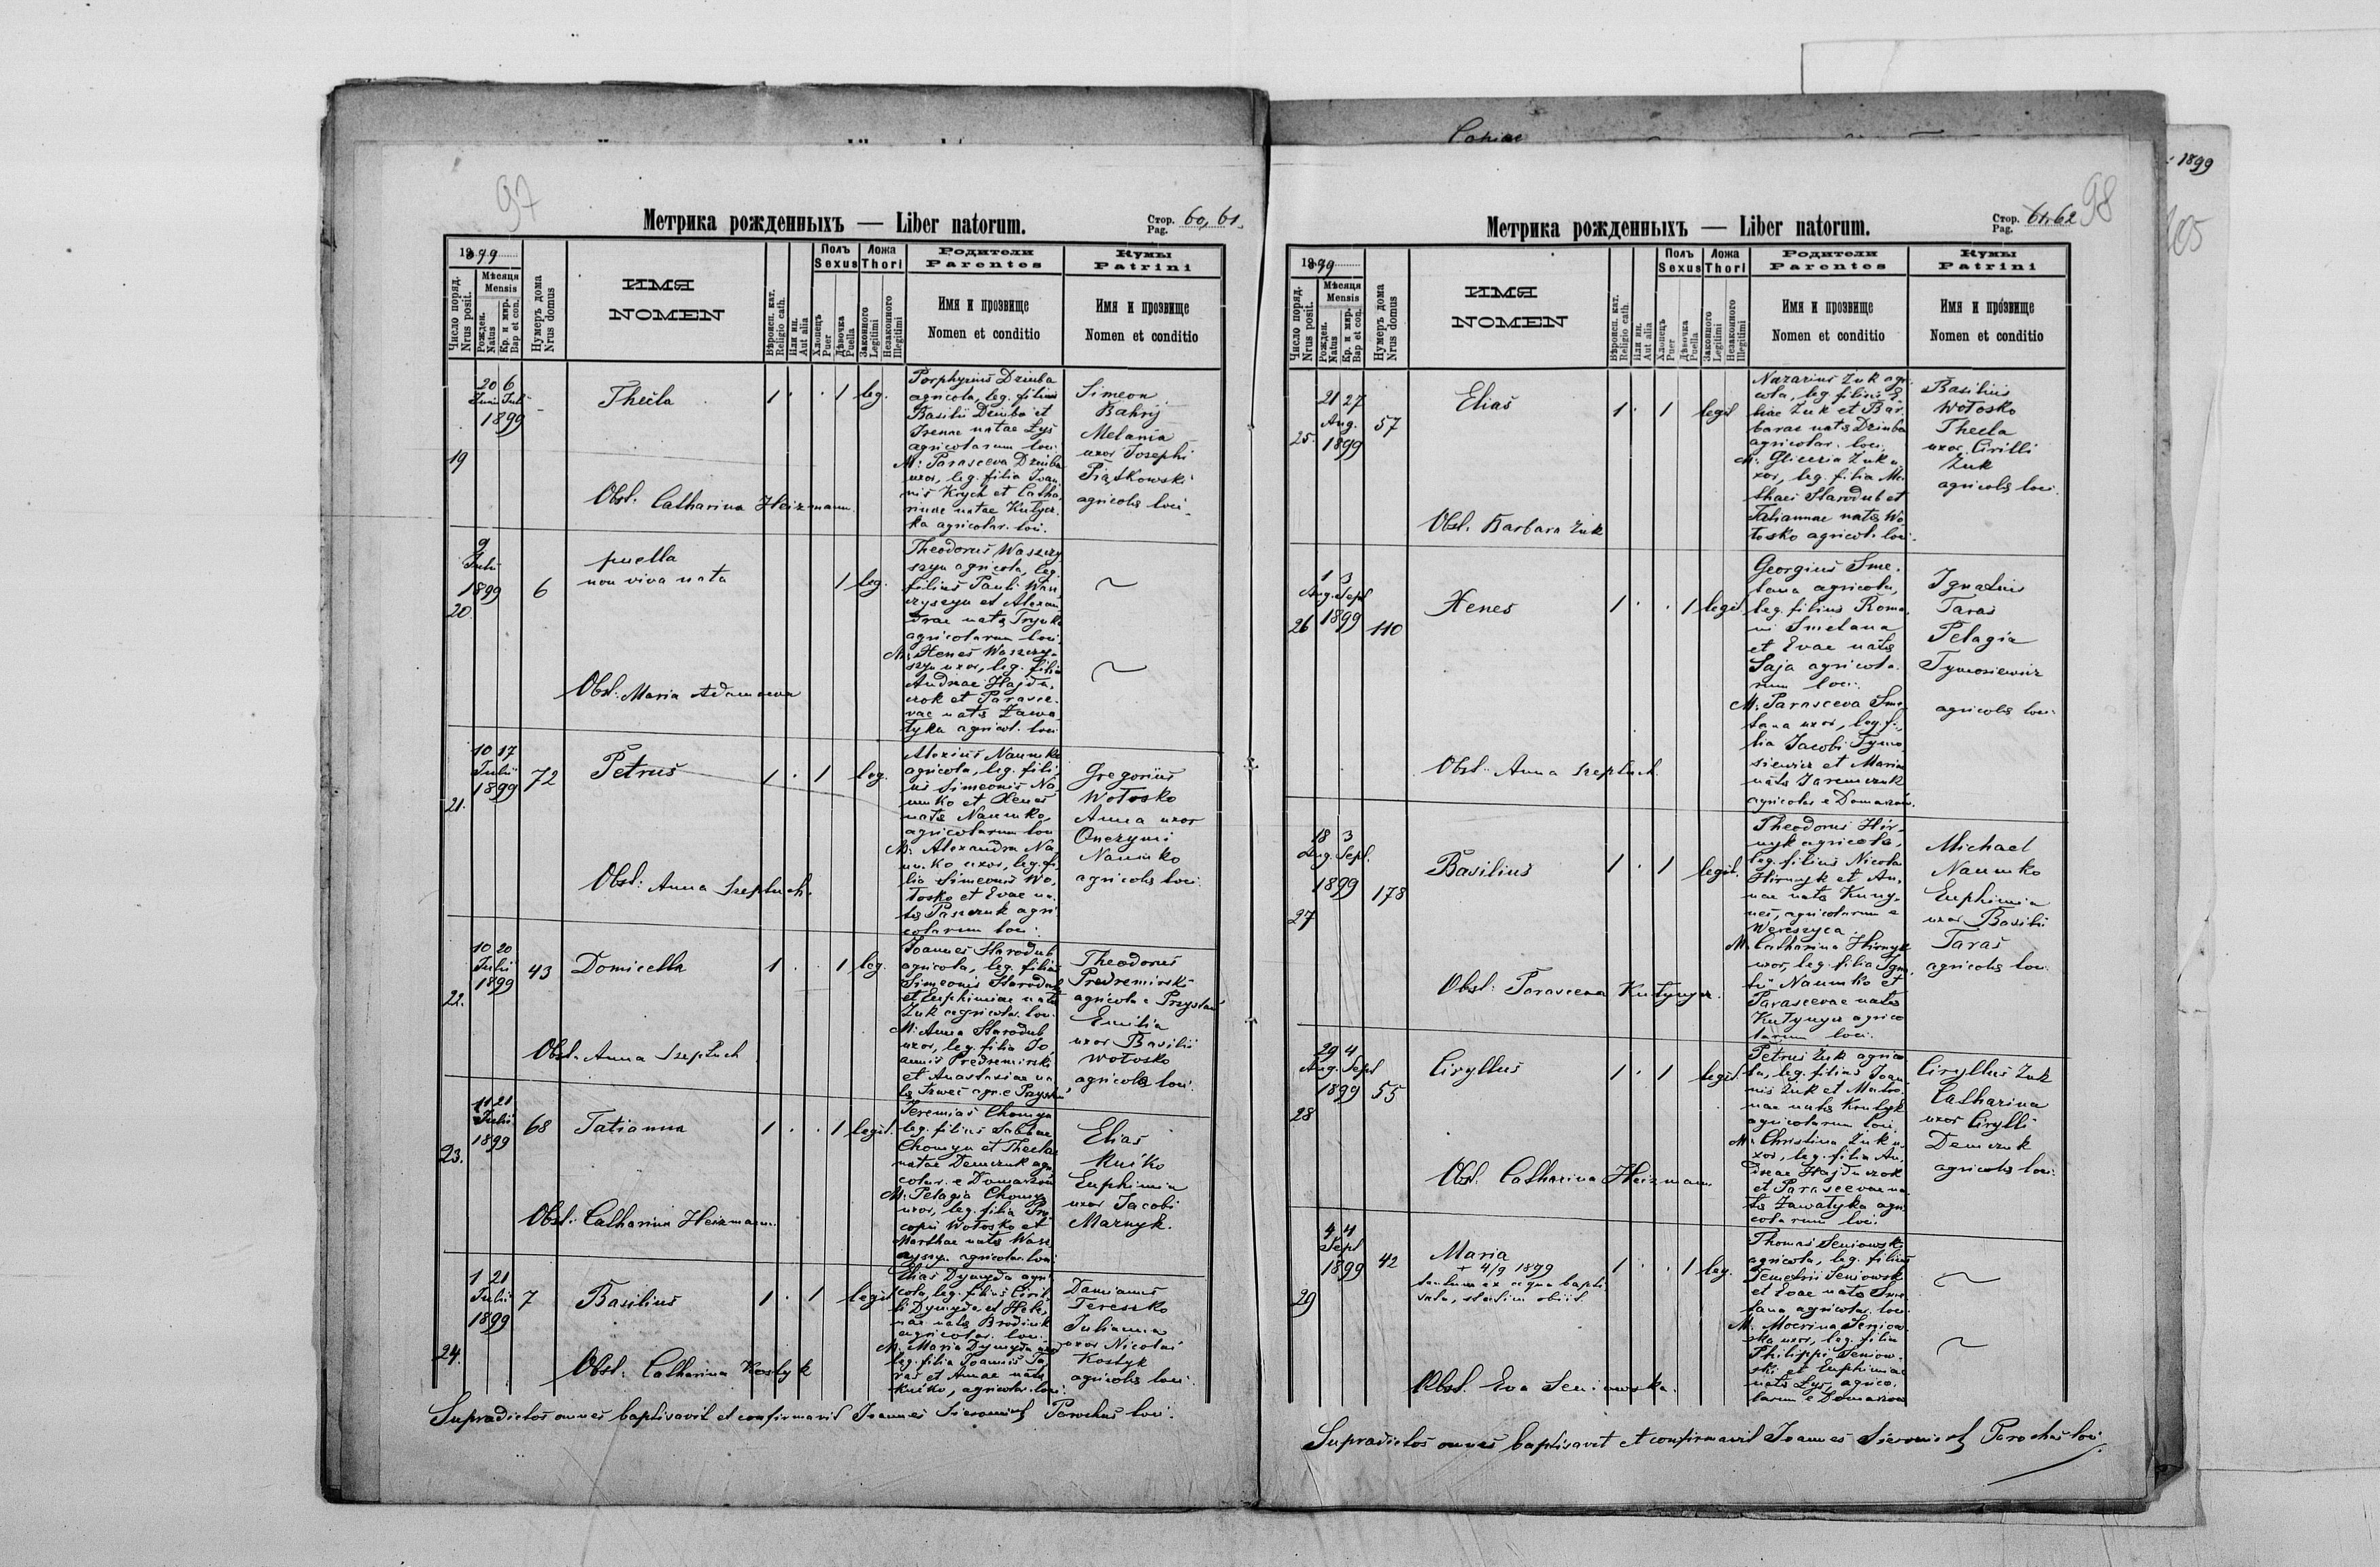 97
Метрика рожденныхъ — Liber natorum.
Стор. Pag. 60, 61.
1899
Число поряд. Nrus posit.
Мѣсяця Mensis
Рожден. Natus
Кр. и мир. Bap et con.
Нумеръ дома Nrus domus
ИМЯ
NOMEN
Вѣроисп. кат. Religio cath.
Или ин. Aut alia
Полъ Sexus
Хлопецъ Puer
Дѣвочка Puella
Ложа Thori
Законного Legitimi
Незаконного Illegitimi
Родители
Parentes
Имя и прозвище
Nomen et conditio
Кумы
Patrini
Имя и прозвище
Nomen et conditio
19
20 6
Junii Julii
1899
Thecla
1 . . 1 leg.
Obst. Catharina Heizmann.
Porphyrius Dziuba
agricola, leg. filius
Basilii Dziuba et
Irenae natae Łys
agricolarum loci.
M: Parasceva Dziuba
uxor, leg. filia Joan
nis Krych et Catha
rinae natae Kutyez
ka agricolar. loci.
Simeon
Bahrij
Melania
uxor Josephi
Piątkowski
agricolae loci.
20
9
Julii
1899
6
puella
non viva nata
1 leg.
Obst. Maria Adamcewa
Theodorus Waszczy
szyn agricola, leg.
filius Pauli Wasz
czyszyn et Alexan
drae natae Hryńko
agricolarum loci.
M: Xenes Waszczy-
szyn uxor, leg. filia
Andreae Hajdu
czok et Parasce
vae natae Zawa
tyka agricol. loci
21.
10 17
Julii
1899
72
Petrus
1 . 1 leg.
Obst: Anna Szeptuch.
Alexius Naumko
agricola, leg. fili
us Simeonis Na
umko et Xenes
natae Naumko,
agricolarum loci
M: Alexandra Na
umko uxor, leg. fi
lia Simeonis Wo
łosko et Evae na
tae Paszczuk agri
colarum loci.
Gregorius
Wołosko
Anna uxor
Onezymi
Naumko
agricolae loci.
22.
10 20
Julii
1899
43
Domicella
1 . . 1 leg.
Obst. Anna Szeptuch
Joannes Starodub
agricola, leg. filius
Simeonis Starodub
et Euphimiae natae
Żuk agricolar. loci.
M: Anna Starodub
uxor, leg. filia Jo
annis Predremirski
et Anastasiae na
tae Szweć agr. e Przystań
Theodorus
Predremirski
agricola e Przystań
Emilia
uxor Basilii
Wołosko
agricola loci.
23.
11 21
Julii
1899
68
Tatianna
1 . . 1 legit.
Obst: Catharina Heizmann.
Jeremias Chomyn
leg. filius Sabbae
Chomyn et Theclae
natae Demczuk agri
colar. e Domaszów
M: Pelagia Chomyn
uxor, leg. filia Pro
copii Wołosko et
Marthae natae Wasz
czyszyn agricolar. loci.
Elias
Kuśko
Euphimia
uxor Jacobi
Marnyk.
24.
1 21
Julii
1899
7
Basilius
1 . 1 legit.
Obst: Catharina Kostyk
Elias Dymyda agri
cola, leg. filius Ciril
li Dymyda et Hele
nae natae Brodiuk
agricolar. loci.
M. Maria Dymyda uxor
leg. filia Joannis Ta
ras et Annae natae
Kuśko, agricolar. loci.
Damianus
Tereszko
Julianna
uxor Nicolai
Kostyk
agricolae loci.
Supradictos omnes baptisavit et confirmavit Joannes Parochus loci.
98
Метрика рожденныхъ — Liber natorum.
Стор. Pag. 61, 62
1899
Число поряд. Nrus posit.
Мѣсяця Mensis
Рожден. Natus
Кр. и мир. Bap et con.
Нумеръ дома Nrus domus
ИМЯ
NOMEN
Вѣроисп. кат. Religio cath.
Или ин. Aut alia
Полъ Sexus
Хлопецъ Puer
Дѣвочка Puella
Ложа Thori
Законного Legitimi
Незаконного Illegitimi
Родители
Parentes
Имя и прозвище
Nomen et conditio
Кумы
Patrini
Имя и прозвище
Nomen et conditio
25.
21 27
Aug.
1899
57
Elias
1 . 1 legit
Obst. Barbara Żuk
Nazarius Żuk agri
cola, leg. filius E
liae Żuk et Bar
barae natae Dziuba
agricolar. loci.
M: Gliceria Żuk u
xor, leg. filia Ma
thaei Starodub et
Tatiannae natae Wo
łosko agricol. loci.
Basilius
Wołosko
Thecla
uxor Cirilli
Żuk
agricolae loci.
26
1 3
Aug. Sept
1899
110
Xenes
1 . . 1 legit.
Obst. Anna Szeptuch.
Georgius Sme-
tana agricola,
leg. filius Roma
ni Smetana
et Evae natae
Saja agricola
rum loci.
M: Parasceva Sme
tana uxor, leg. fi
lia Jacobi Tymo
siewicz et Mariae
natae Jaremczuk
agricolae e Domaszów.
Ignatius
Taras
Pelagia
Tymosiewicz
agricolae loci.
27
18 3
Aug. Sept.
1899
178
Basilius
1 . 1 legit.
Obst: Parasceva Kutynycz.
Theodorus Hir-
nyk agricola,
leg. filius Nicolai
Hirnyk et An
nae natae Kuny-
nec, agricolarum e
Wereszyca.
M: Catharina Hirnyk
uxor, leg. filia Igna
tii Naumko et
Parascevae natae
Kutynycz agrico
larum loci.
Michael
Naumko
Euphimia
uxor Basilii
Taras
agricolae loci.
28
29 4
Aug. Sept
1899
55
Ciryllus
1 . 1 legit.
Obst. Catharina Heizmann
Petrus Żuk agrico
la, leg. filius Joan
nis Żuk et Matro
nae natae Krutyk
agricolarum loci.
M: Christina Żuk u
xor, leg. filia An
dreae Hajduczok
et Parascevae na
tae Zawatyka agri
colarum loci.
Ciryllus Żuk
Catharina
uxor Cirylli
Demczuk
agricolae loci.
29
4 4
Sept
1899
42
Maria
+ 4/9 1899
tantum ex aqua bapti
sata, statim obiit.
1 . . 1 leg.
Obst. Eva Seniowska.
Thomas Seniowski
agricola, leg. filius
Demetrii Seniowski
et Evae natae Sme
tana agricolar. loci.
M. Mocrina Seniow
ska uxor, leg. filia
Philippi Seniow-
ski et Euphimiae
natae Łys, agrico-
larum e Domaszów
Supradictos omnes baptisavit et confirmavit Joannes Parochus loci.
1899